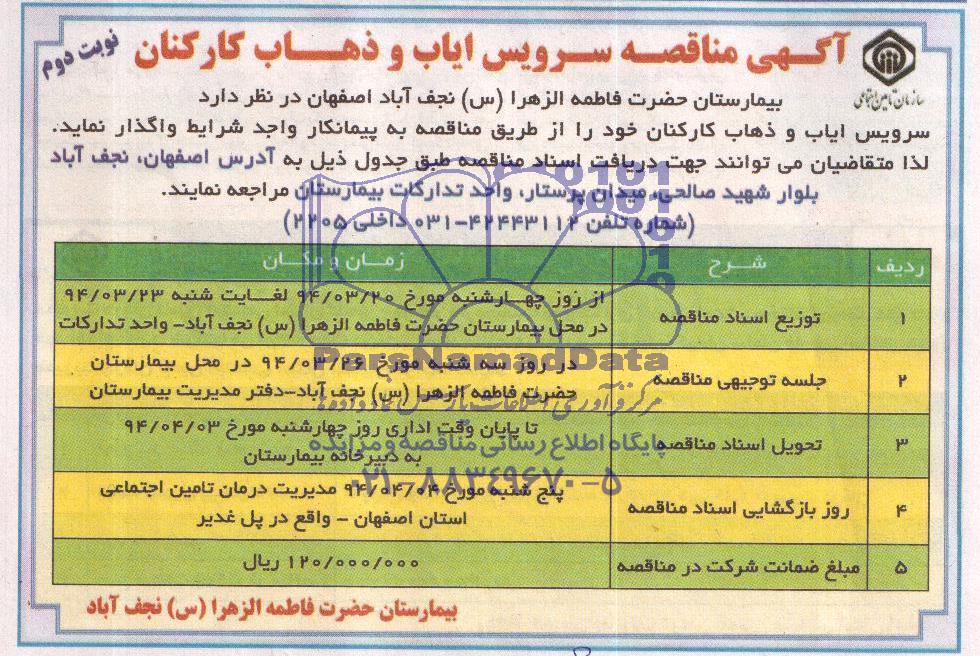 آگهی مناقصه سرویس ایاب و ذهاب کارکنان
نوبت دوم
سازمان تامین اجتماعی
بیمارستان حضرت فاطمه الزهرا (س) نجف آباد اصفهان در نظر دارد
سرویس ایاب و ذهاب کارکنان خود را از طریق مناقصه به پیمانکار واجد شرایط واگذار نماید.
لذا متقاضیان می توانند جهت دریافت اسناد مناقصه طبق جدول ذیل به آدرس اصفهان، نجف آباد
بلوار شهید صالحی، میدان پرستار، واحد تدارکات بیمارستان مراجعه نمایند.
(شماره تلفن ۴۲۴۴۳۱۱۲-۰۳۱ داخلی ۲۲۰۵)
ردیف شرح زمان و مکان
۱ توزیع اسناد مناقصه از روز چهارشنبه مورخ ۹۴/۰۳/۲۰ لغایت شنبه ۹۴/۰۳/۲۳
در محل بیمارستان حضرت فاطمه الزهرا (س) نجف آباد- واحد تدارکات
۲ جلسه توجیهی مناقصه در روز سه شنبه مورخ ۹۴/۰۳/۲۶ در محل بیمارستان
حضرت فاطمه الزهرا (س) نجف آباد-دفتر مدیریت بیمارستان
۳ تحویل اسناد مناقصه تا پایان وقت اداری روز چهارشنبه مورخ ۹۴/۰۴/۰۳
به دبیرخانه بیمارستان
۴ روز بازگشایی اسناد مناقصه پنج شنبه مورخ ۹۴/۰۴/۰۴ مدیریت درمان تامین اجتماعی
استان اصفهان - واقع در پل غدیر
۵ مبلغ ضمانت شرکت در مناقصه ۱۲۰/۰۰۰/۰۰۰ ریال
بیمارستان حضرت فاطمه الزهرا (س) نجف آباد
ParsNamadData
مرکز فرآوری اطلاعات پارس نماد داده ها
پایگاه اطلاع رسانی مناقصه و مزایده
۰۲۱-۸۸۳۴۹۶۷۰-۵